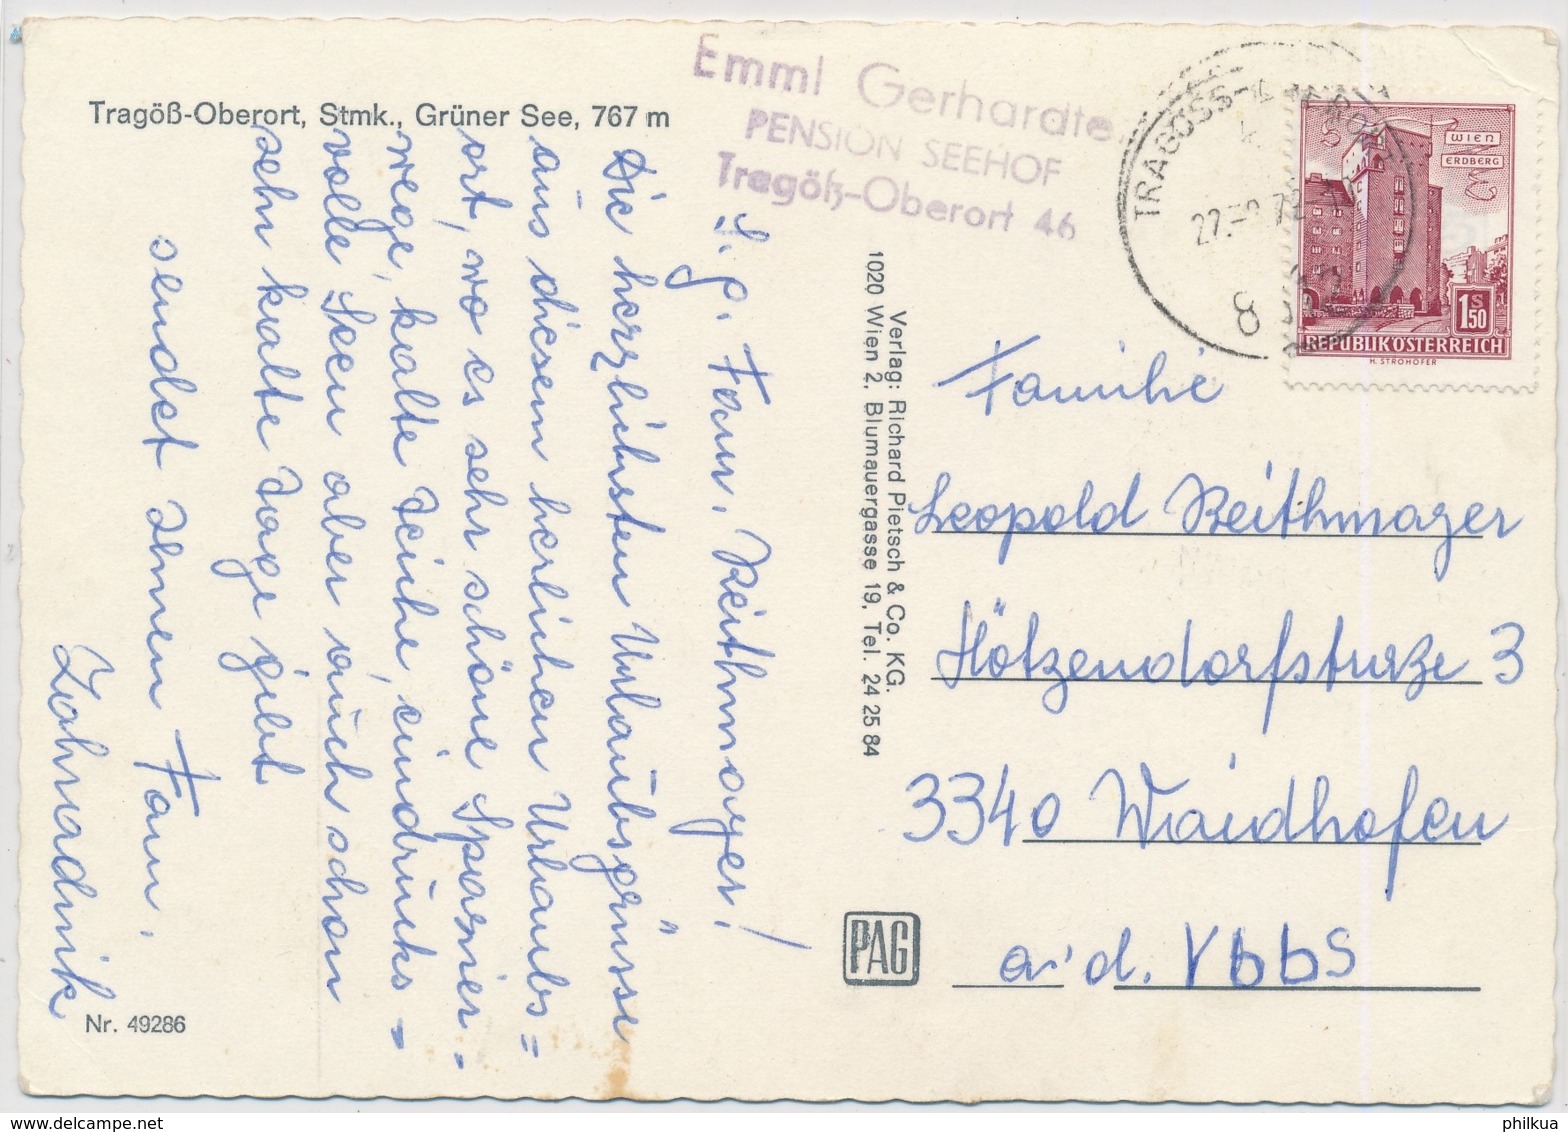 Tragöß-Oberort, Stmk., Grüner See, 767 m
Emmi Gerhardter
PENSION SEEHOF
Tragöß-Oberort 46
TRAGÖSS-OBERORT
27.
8
WIEN
ERDBERG
1 S 50
REPUBLIK ÖSTERREICH
H. STROHOFER
S. g. Fam. Reithmayer!
Die herzlichsten Urlaubsgrüsse
aus diesem herlichen Urlaubs=
ort, wo es sehr schöne Spazier-
wege, kalte Teiche, eindrucks-
volle Seen aber auch schon
sehr kalte Tage gibt
sendet Ihnen Fam.
Zahradnik
Verlag: Richard Pietsch & Co. KG.
1020 Wien 2, Blumauergasse 19, Tel. 24 25 84
Familie
Leopold Reithmayer
Hötzendorfstraße 3
3340 Waidhofen
a. d. Ybbs
PAG
Nr. 49286
delcampe.net
philkua